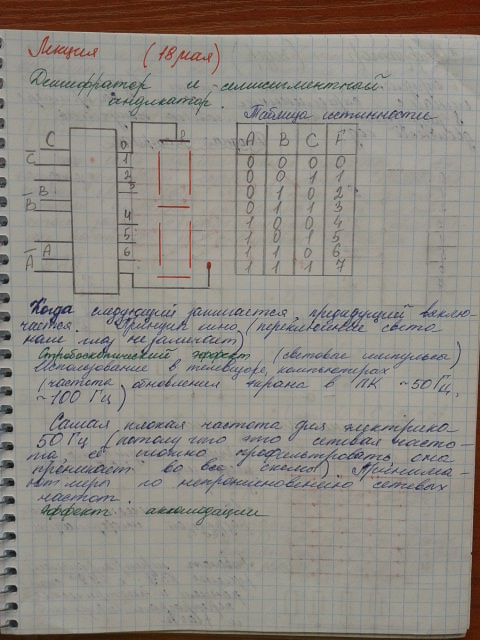 Лекция (18 мая)
Дешифратор и семисегментный
индикатор.
Таблица истинности
A B C F
0 0 0 0
0 0 1 1
0 1 0 2
0 1 1 3
1 0 0 4
1 0 1 5
1 1 0 6
1 1 1 7
C
C̅
B
B̅
A
A̅
0
1
2
3
4
5
6
Когда следующий зажигается, предыдущий выклю-
чается. Принцип кино (переключение света
наш глаз не замечает)
Стробоскопический эффект (световые импульсы)
Использование в телевизоре, компьютерах
(частота обновления экрана в ПК ~50Гц,
~100 Гц)
Самая плохая частота для электрико-
50 Гц (потому что это сетевая часто-
та, её сложно профильтровать, она
проникает во все схемы). Принима-
ют меры по непроникновению сетевых
частот.
Эффект аккомодации